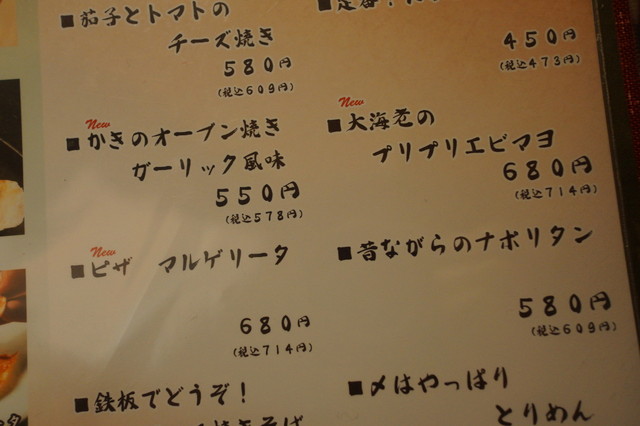 ■茄子とトマトの
チーズ焼き
580円
(税込609円)
New
■かきのオーブン焼き
ガーリック風味
550円
(税込578円)
New
■ピザ マルゲリータ
680円
(税込714円)
■鉄板でどうぞ!
450円
(税込473円)
New
■大海老の
プリプリエビマヨ
680円
(税込714円)
■昔ながらのナポリタン
580円
(税込609円)
■〆はやっぱり
とりめん